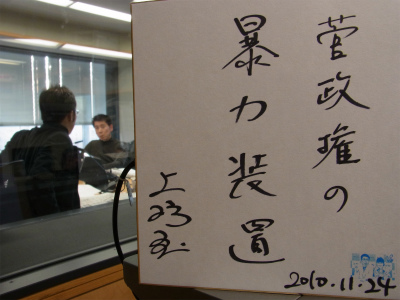 菅政権の
暴力装置
上杉隆
2010.11.24